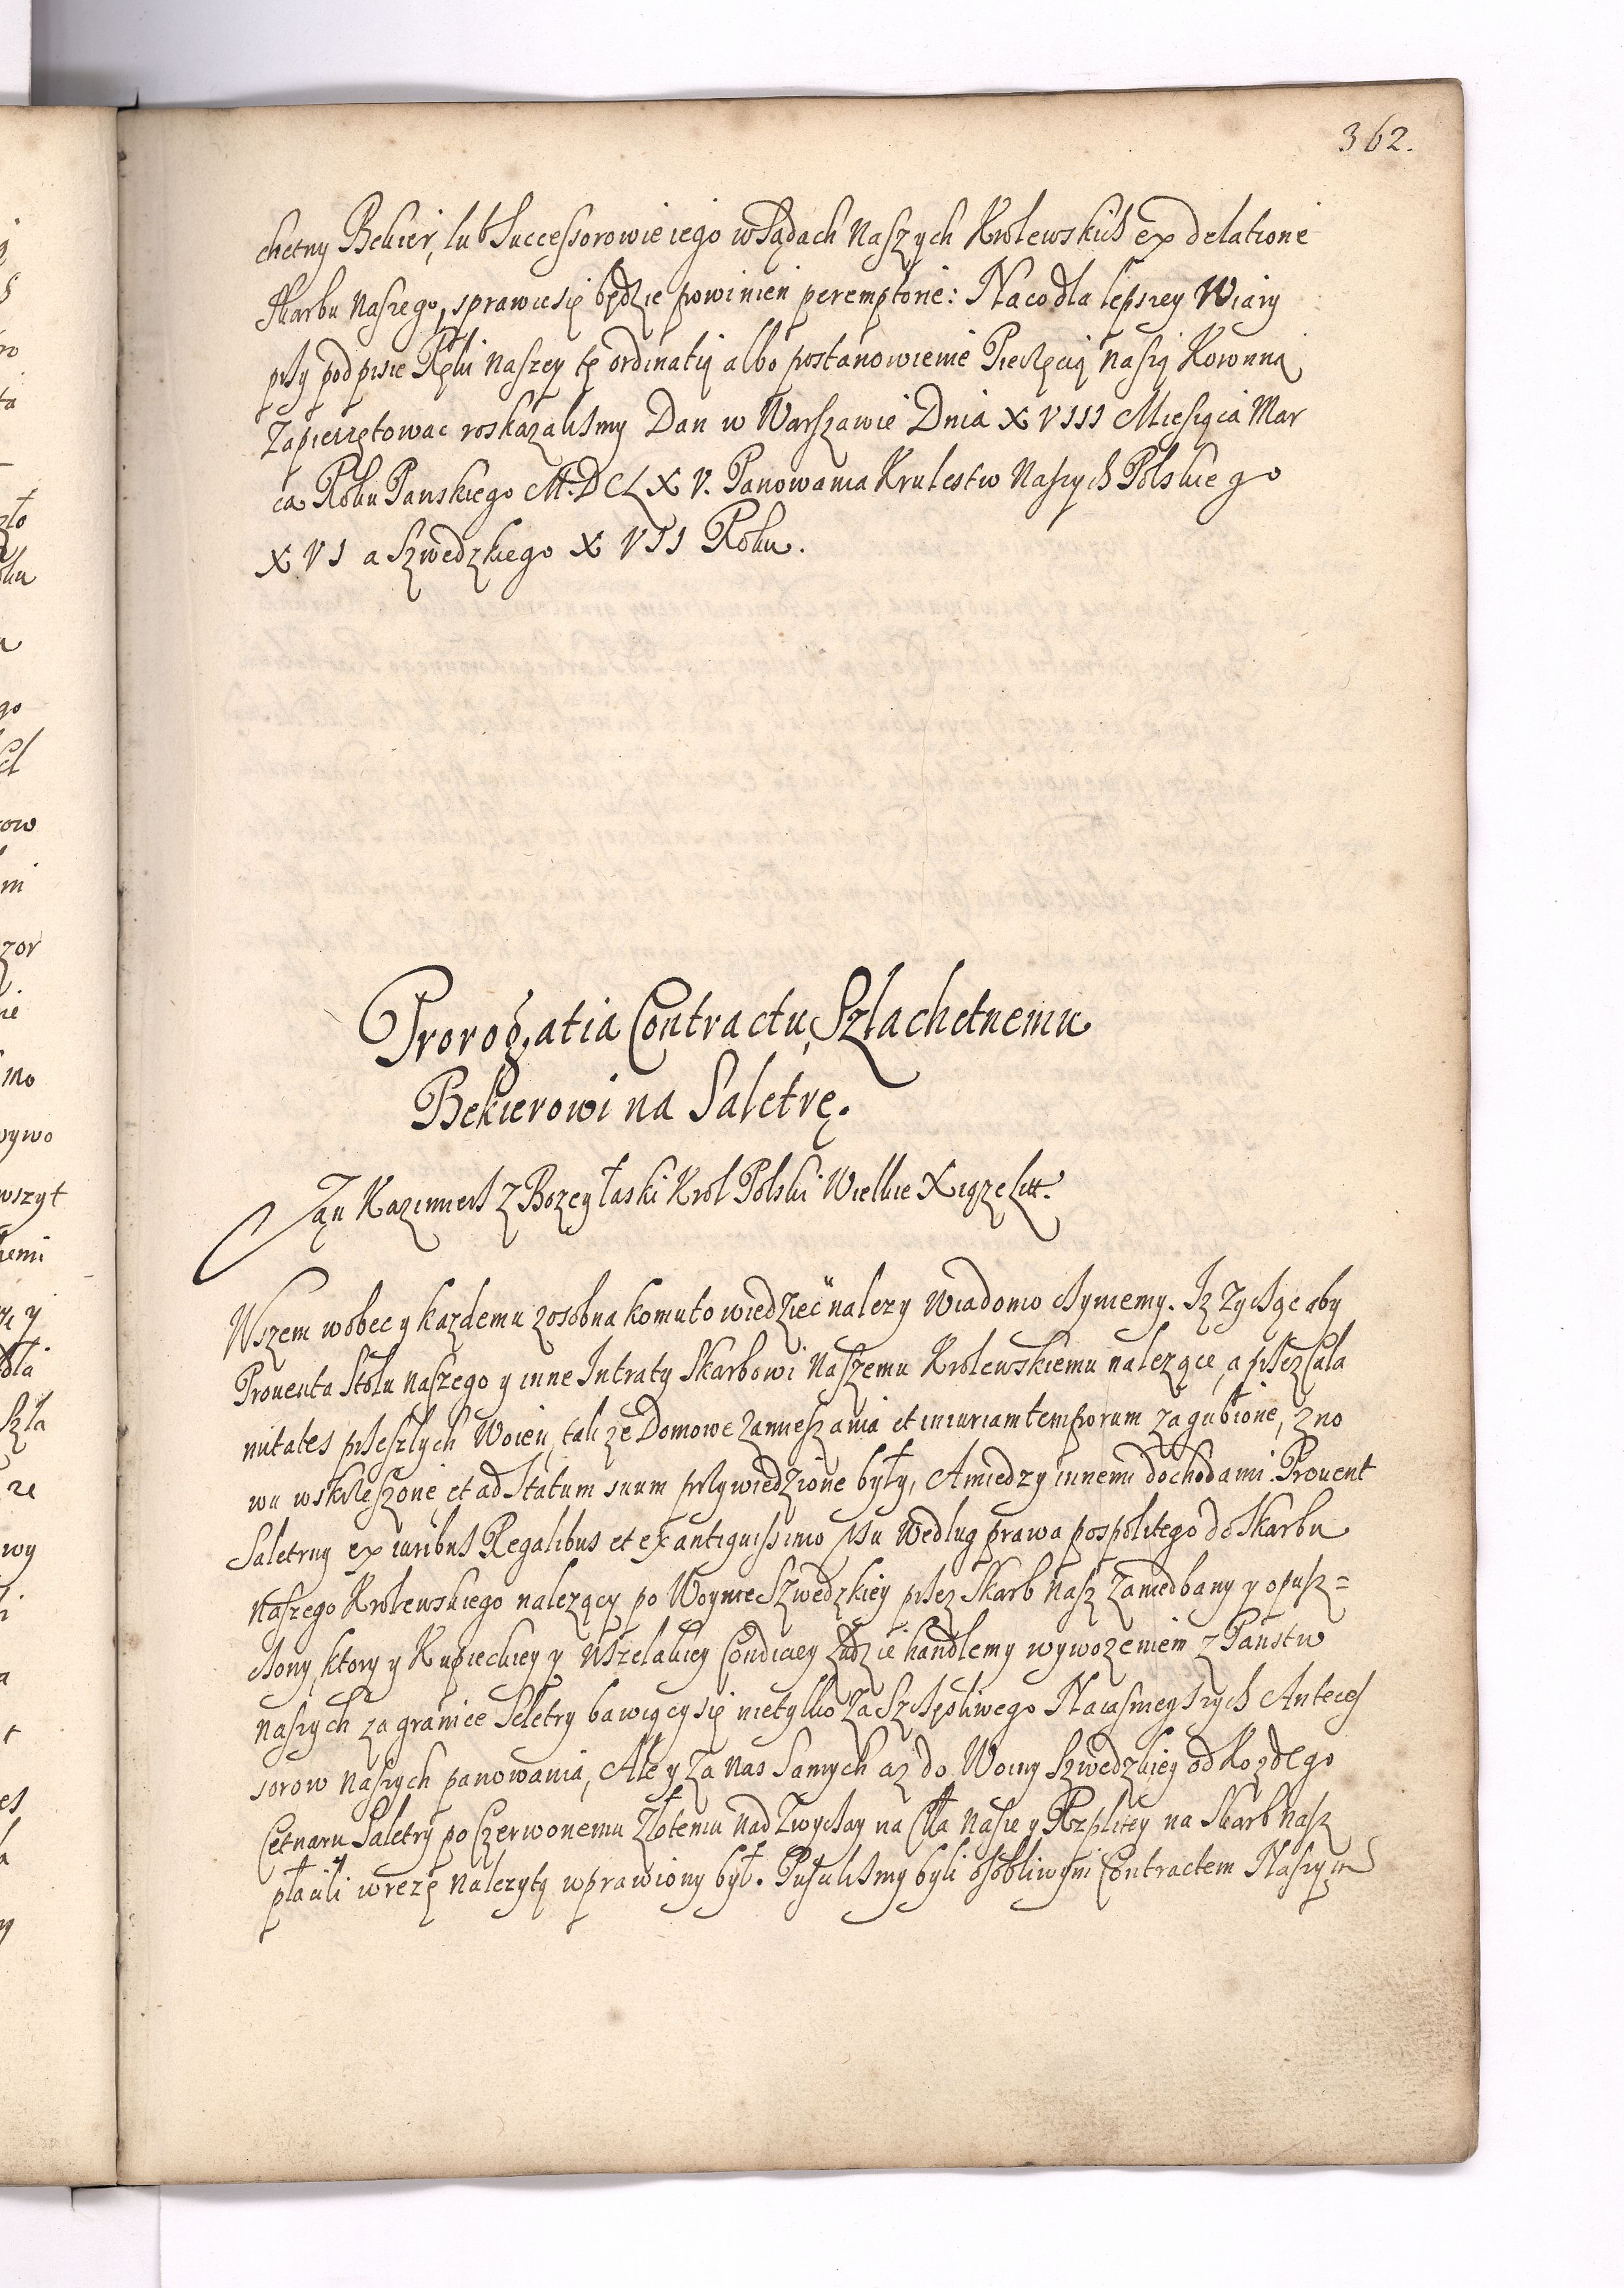 362.
chetny Bekier, lub Successorowie iego w Sądach Naszych Krolewskich ex delatione
Skarbu Naszego, sprawic się będzie powinien peremptorie: Naco dla lepszey Wiary
przy podpisie Ręki Naszey tę ordinatią albo postanowienie Pieczęcią Naszą Koronną
Zapieczętowac roskazalismy Dan w Warszawie Dnia XVIII Miesiąca Mar
ca Roku Panskiego M.DCLXV. Panowania Krulestw Naszych Polskiego
XVI a Szwedzkiego XVII Roku.
Prorogatia Contractu Szlachetnemu
Bekierowi na Saletrę.
Jan Kazimierz z Bozey Łaski Krol Polski Wielkie Xiąze Litt.
Wszem wobec y kazdemu zosobna komu to wiedziec nalezy Wiadomo czyniemy. Iz Zycząc aby
Prouenta Stołu naszego y inne Intraty Skarbowi Naszemu Krolewskiemu nalezące, a przez Cala
mitates przeszlych Woien, tak ze Domowe zamieszania et iniuriam temporum zagubione, zno
wu wskrzeszone et ad Statum suum przywiedzione były, A miedzy innemi dochodami Prouent
Saletrny ex iuribus Regalibus et ex antiquissimo usu Wedlug prawa pospolitego do Skarbu
Naszego Krolewskiego nalezący po Woynie Szwedzkiey przez Skarb Nasz Zaniedbany y opusz=
czony, ktory y Kupieckiey y Wszelakiey Condiciey Ludzie handlemy wywozeniem z Panstw
naszych za granice Seletry bawiący się nietylko Za Szczęsliwego Naiasnieyszych Anteces
sorow naszych panowania, Ale y Za nas Samych az do Woiny Szwedzkiey od Kozdego
Cetnaru Saletry po Czerwonemu Złotemu nad Zwyczay na Cła Nasze y Rzpltey na Skarb Nasz
płacili w rezę nalezytą wprawiony był. Puscilismy byli osobliwym Contractem Naszym